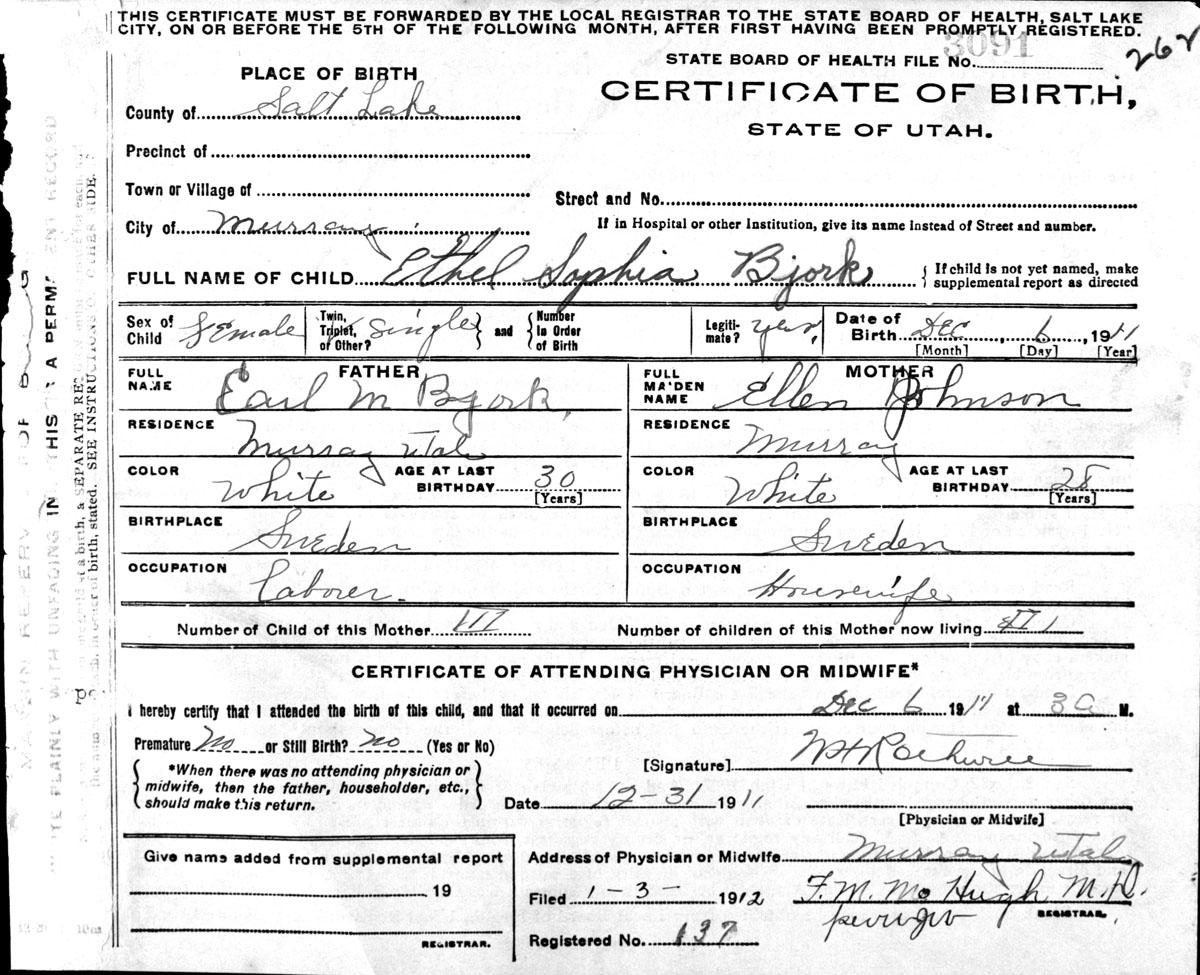 THIS CERTIFICATE MUST BE FORWARDED BY THE LOCAL REGISTRAR TO THE STATE BOARD OF HEALTH, SALT LAKE
CITY, ON OR BEFORE THE 5TH OF THE FOLLOWING MONTH, AFTER FIRST HAVING BEEN PROMPTLY REGISTERED.
3091
STATE BOARD OF HEALTH FILE No.
PLACE OF BIRTH
CERTIFICATE OF BIRTH,
STATE OF UTAH.
County of Salt Lake
Precinct of
Town or Village of
Street and No.
City of Murray
If in Hospital or other Institution, give its name instead of Street and number.
FULL NAME OF CHILD Ethel Sophia Bjork
{ If child is not yet named, make
supplemental report as directed
Sex of Child Female
Twin, Triplet, or Other? Single } and { Number in Order of Birth
Legiti-mate? yes
Date of Birth Dec 6, 1911
[Month] [Day] [Year]
FATHER
MOTHER
FULL NAME Earl M Bjork
FULL MAIDEN NAME Ellen Johnson
RESIDENCE Murray Utah
RESIDENCE Murray
COLOR White AGE AT LAST BIRTHDAY 30 [Years]
COLOR White AGE AT LAST BIRTHDAY 28 [Years]
BIRTHPLACE Sweden
BIRTHPLACE Sweden
OCCUPATION Laborer
OCCUPATION Housewife
Number of Child of this Mother
Number of children of this Mother now living
CERTIFICATE OF ATTENDING PHYSICIAN OR MIDWIFE*
I hereby certify that I attended the birth of this child, and that it occurred on Dec 6 1911 at 3 a M.
Premature No or Still Birth? No (Yes or No)
[Signature]
{ *When there was no attending physician or
midwife, then the father, householder, etc.,
should make this return. }
Date 12-31 1911
[Physician or Midwife]
Give name added from supplemental report
19
REGISTRAR.
Address of Physician or Midwife Murray Utah
Filed 1-3- 1912 F. M. McHugh M.D.
REGISTRAR.
Registered No. 137